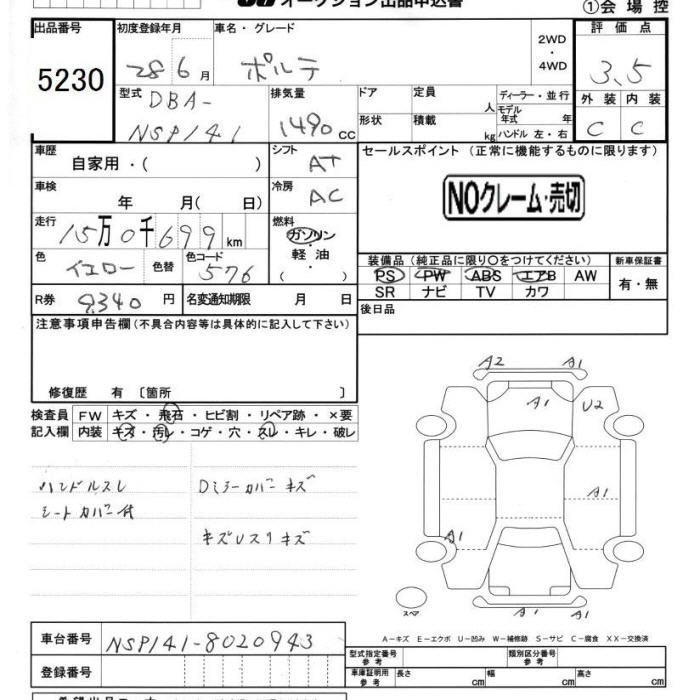 オークション出品申込書
①会場控
出品番号 初度登録年月 車名・グレード 評価点
5230 28 6月 ポルテ 2WD・4WD 3.5
型式 DBA-
NSP141
排気量 1490 cc
ドア 定員 人 ディーラー・並行
モデル年式 年
形状 積載 kg ハンドル 左・右
外装 内装
C C
車歴 自家用・( )
シフト AT
セールスポイント (正常に機能するものに限ります)
NOクレーム・売切
車検 年 月( 日)
冷房 AC
走行 15万0千699km
燃料 ガソリン・軽油・( )
色 イエロー 色替 色コード 576
装備品 (純正品に限り○をつけてください) 新車保証書
PS PW ABS エアB AW 有・無
SR ナビ TV カワ
R券 9,340円 名変通知期限 月 日
後日品
注意事項申告欄 (不具合内容等は具体的に記入して下さい)
修復歴 有 〔箇所 〕
検査員 FW キズ・飛石・ヒビ割・リペア跡・×要
記入欄 内装 キズ・汚レ・コゲ・穴・スレ・キレ・破レ
A2 A1
A1 U2
A1
A1
A1 A1
スペア
ハンドルスレ Dミラーカバーキズ
シートカバー付
キズUスリキズ
A-キズ E-エクボ U-凹み W-補修跡 S-サビ C-腐食 XX-交換済
車台番号 NSP141-8020943
登録番号
型式指定番号 参考 類別区分番号 参考
車庫証明用 参考 長さ cm 幅 cm 高さ cm